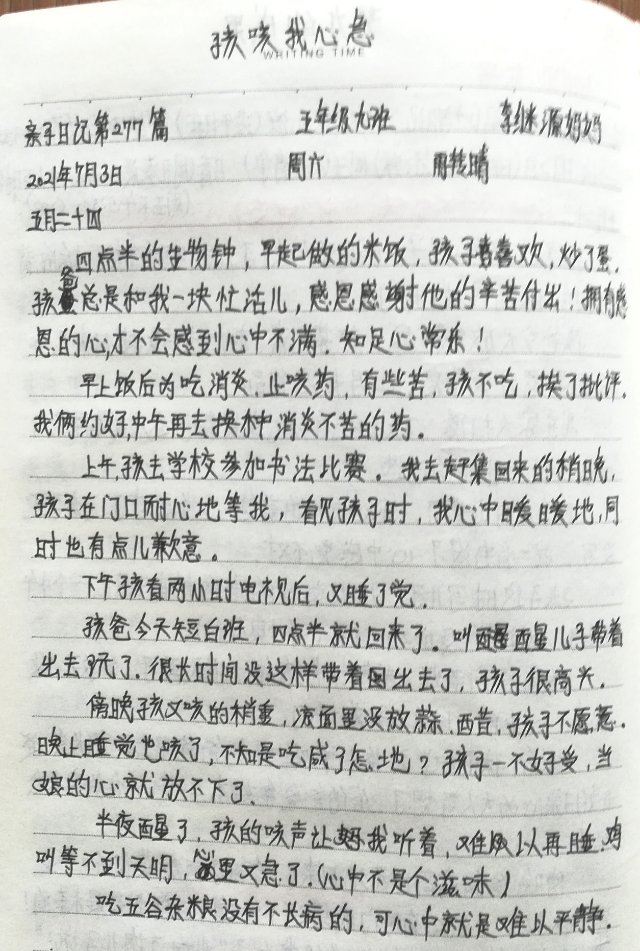 孩咳我心急
WRITING TIME
亲子日记第277篇 五年级九班 李继源妈妈
2021年7月3日 周六 雨转晴
五月二十四
四点半的生物钟，早起做的米饭，孩子喜欢，炒了蛋，
孩爸总是和我一块忙活儿，感恩感谢他的辛苦付出！拥有感
恩的心，才不会感到心中不满．知足心常乐！
早上饭后为吃消炎、止咳药，有些苦，孩不吃，挨了批评．
我俩约好，中午再去换种消炎不苦的药。
上午，孩去学校参加书法比赛。我去赶集回来的稍晚，
孩子在门口耐心地等我，看见孩子时，我心中暖暖地，同
时也有点儿歉意。
下午孩看两小时电视后，又睡了觉．
孩爸今天短白班，四点半就回来了。叫醒儿子带着
出去玩了．很长时间没这样带着出去了，孩子很高兴．
傍晚孩又咳的稍重，凉面里没放蒜、西昔，孩子不愿意．
晚上睡觉也咳了，不知是吃咸了怎地？孩子一不好受，当
娘的心就放不下了．
半夜醒了，孩的咳声让我听着，难以再睡．鸡
叫等不到天明，心里又急了．（心中不是个滋味）
吃五谷杂粮没有不长病的，可心中就是难以平静．